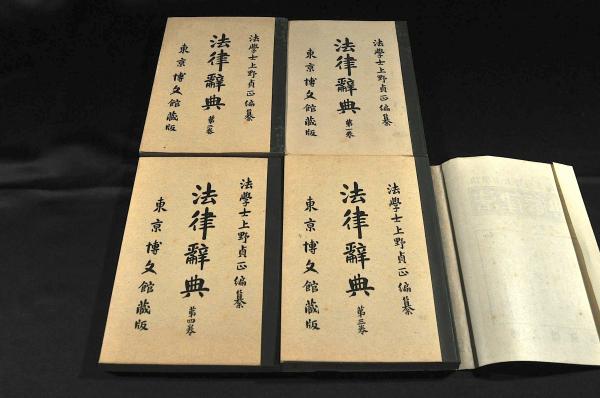 法學士上野貞正編纂
法律辭典 第一卷
東京博文館藏版
法學士上野貞正編纂
法律辭典 第二卷
東京博文館藏版
法學士上野貞正編纂
法律辭典 第三卷
東京博文館藏版
法學士上野貞正編纂
法律辭典 第四卷
東京博文館藏版